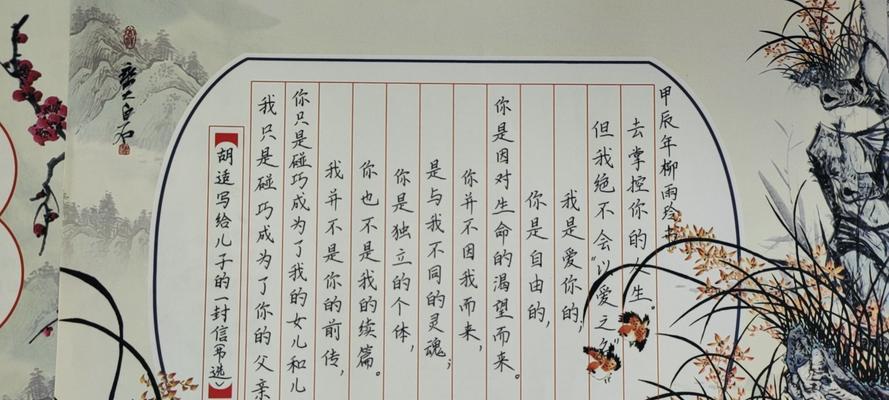 【胡适写给儿子的一封信(节选)】
我只是碰巧成为了你的父亲
你只是碰巧成为了我的女儿和儿
我并不是你的前传，
你也不是我的续篇。
你是独立的个体，
是与我不同的灵魂；
你并不因我而来，
你是因对生命的渴望而来。
你是自由的，
我是爱你的；
但我绝不会“以爱之名”
去掌控你的人生。
甲辰年柳雨书